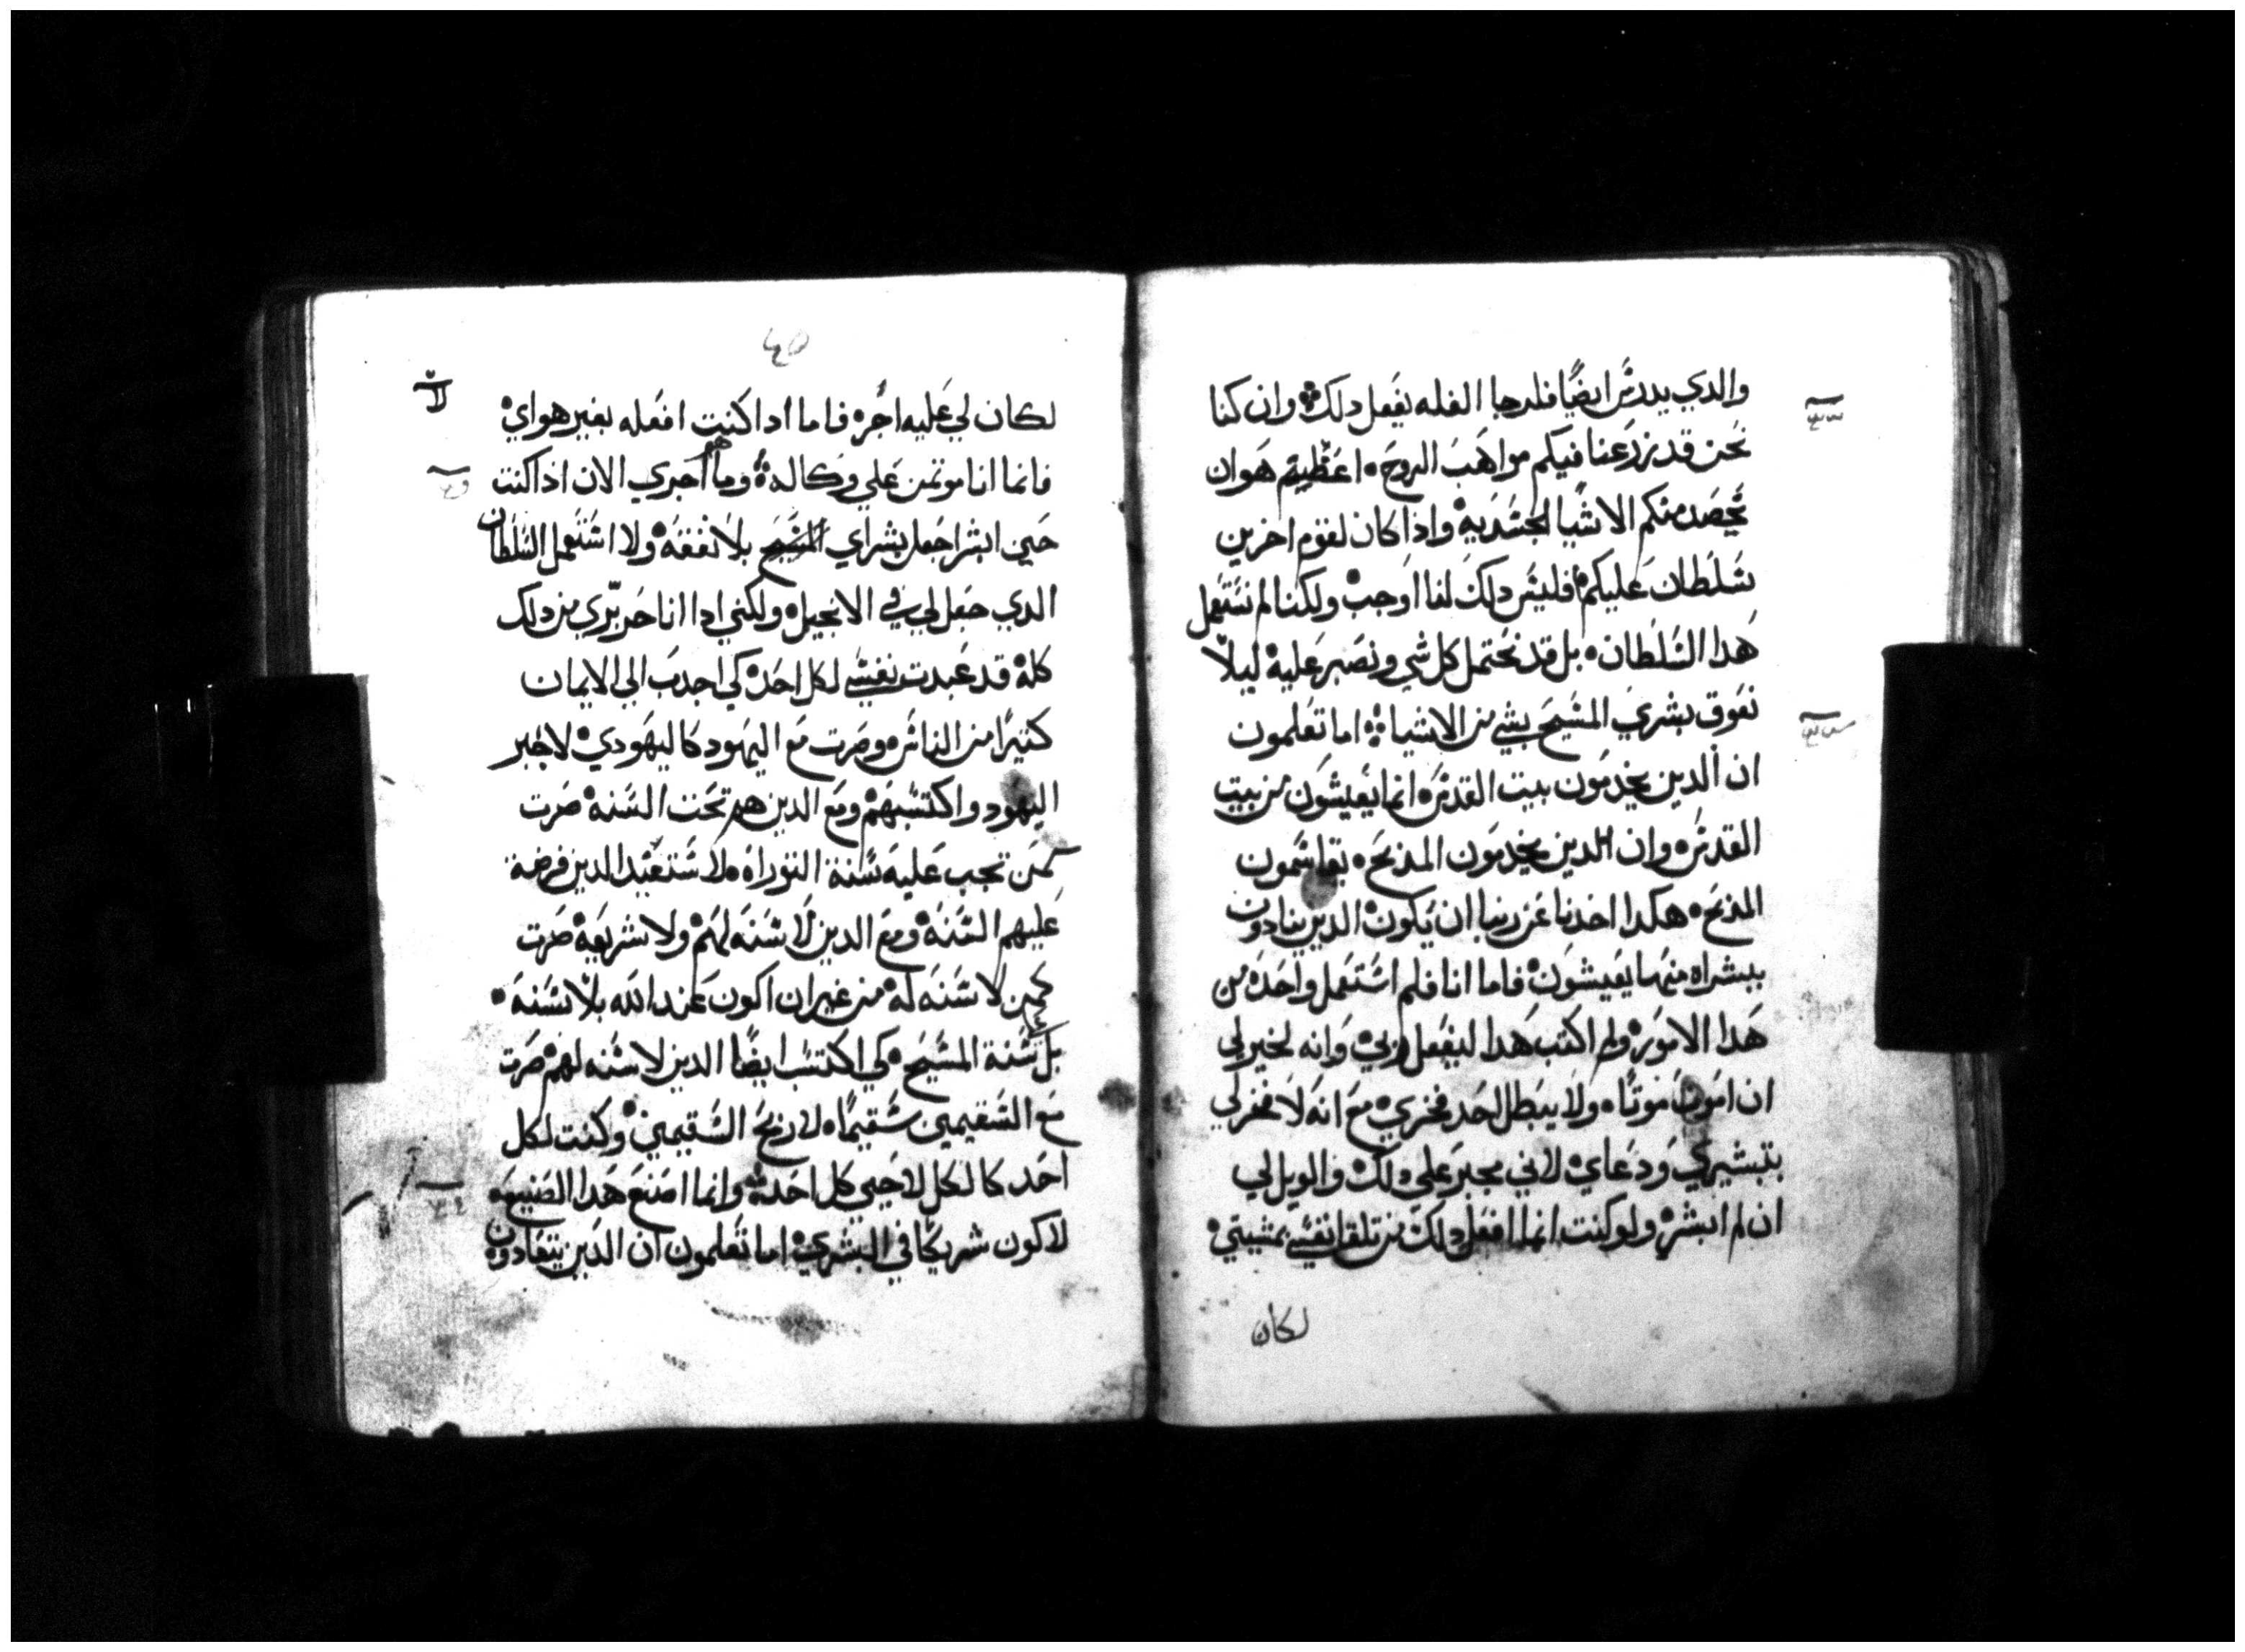 والدي يدرس ايضًا فلرجا الغله يفعل دلك وان كنا
نحن قد زرعنا فيكم مواهب الروح اعظيم هوان
نحصد منكم الاشيا الجسديه واذا كان لقوم اخرين
سلطان عليكم فليس دلك لنا اوجب ولكنا لم نستعمل
هدا السلطان بل قد نحتمل كل شي ونصبر عليه ليلّا
نعوق بشري المسيح بشي من الاشيا اما تعلمون
ان الدين يخدمون بيت القدس انما يعيشون من بيت
القدس وان الدين يخدمون المذبح يقاسمون
المذبح هكدا اخدنا عن ربنا ان يكون الدين ينادون
ببشراه منها يعيشون فاما انا فلم استعمل واحده من
هدا الامور ولم اكتب هدا ليفعل بي وانه لخير لي
ان اموت موتًا ولا يبطل احد فخري مع انه لا فخر لي
بتبشيري ودعاي لاني مجبر علي دلك والويل لي
ان لم ابشر ولو كنت انما افعل دلك من تلقا نفسي بمشيتي
لكان
لكان لي عليه اجره فاما ادا كنت افعله بغير هواي
فانما انا موتمن علي وكاله وما هو اجري الان اذا كنت
حين ابشر اجعل بشراي المسيح بلا نفقه ولا استعمل السلطان
الدي جعل لي في الانجيل ولكني ادا انا حر بّري من دلك
كله قد عبدت نفسي لكل احد كي اجدب الي الايمان
كثيرًا من الناس وصرت مع اليهود كاليهودي لاجبر
اليهود واكتسبهم ومع الدين هم تحت السنه صرت
كمن تجب عليه سنة التوراه لاستعبد الدين فرضة
عليهم السنه ومع الدين لا سنه لهم ولا شريعه صرت
كمن لا سنه له من غير ان اكون عند الله بلا سنه
بل سنة المسيح كي اكتسب ايضًا الدين لا سنه لهم صرت
مع السقيمين سقيمًا لاربح السقيمين وكنت لكل
احد كالكل لاحيي كل احد وانما اصنع هدا الصنيعه
لاكون شريكًا في البشري اما تعلمون ان الدين يتعادون